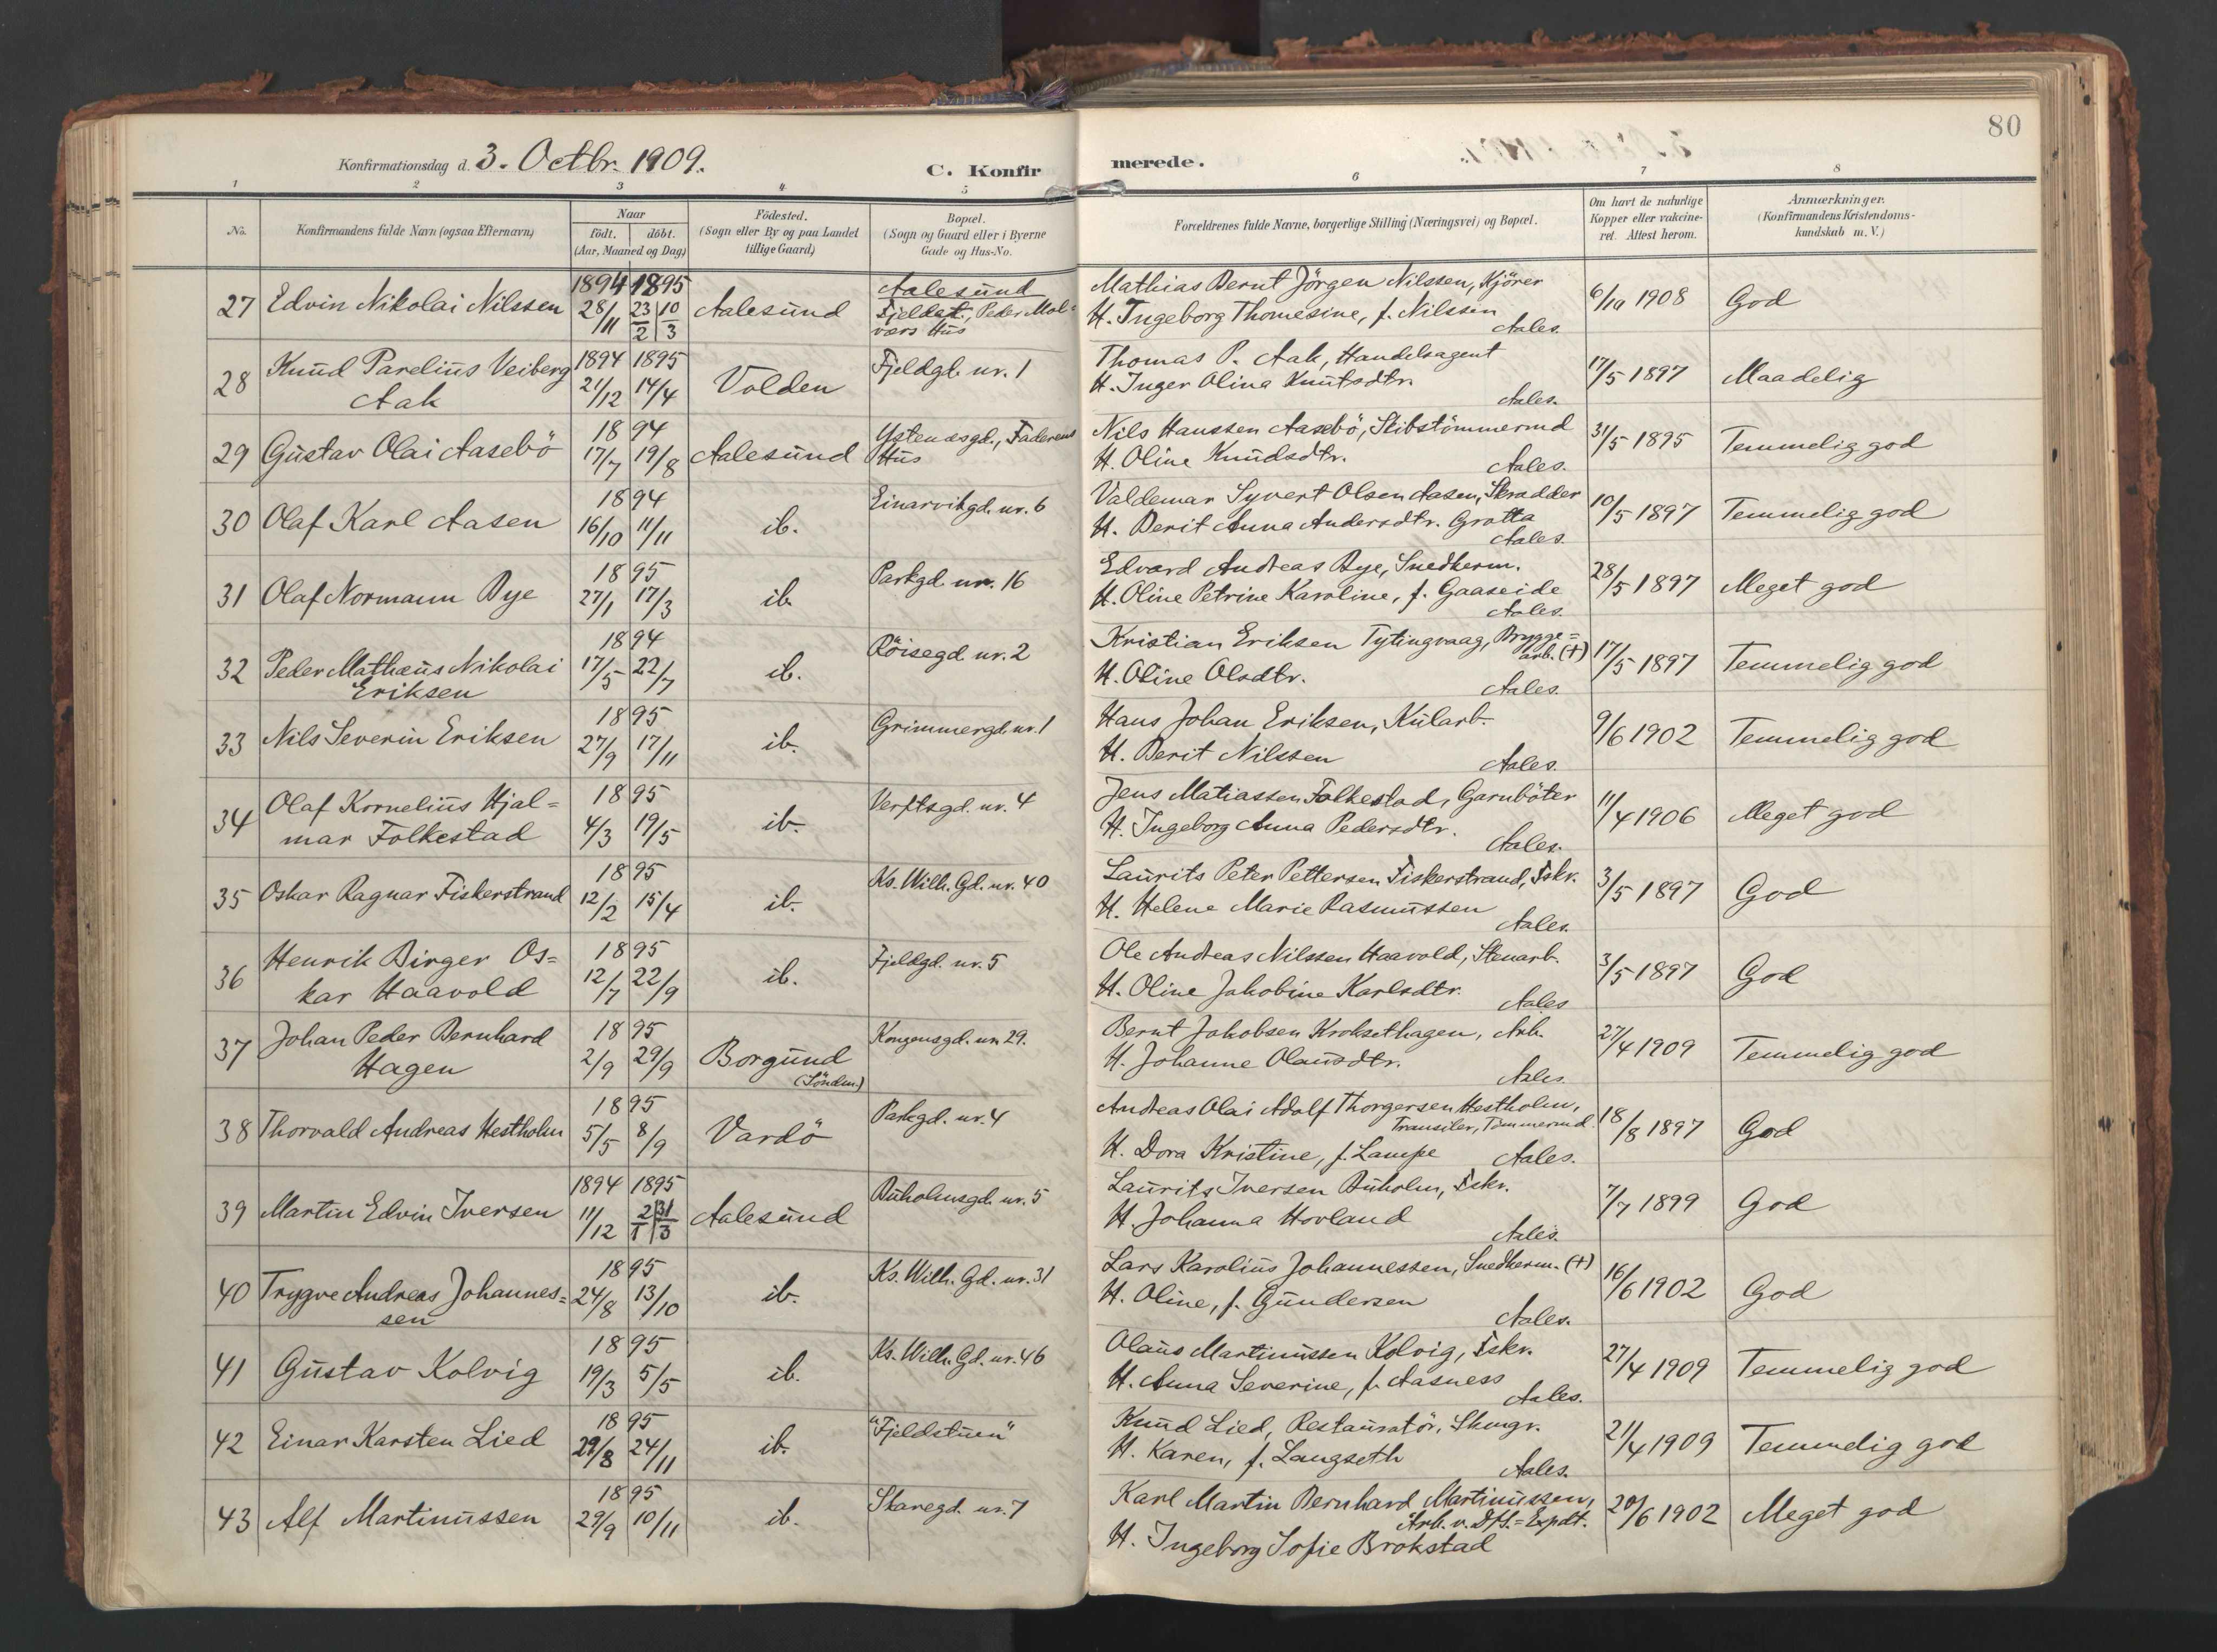 80
Konfirmationsdag d. 3. Octbr. 1909.
C. Konfirmerede.
1 2 3 4 5 6 7 8
No.
Konfirmandens fulde Navn (ogsaa Efternavn)
Naar
født. døbt.
(Aar, Maaned og Dag)
Fødested.
(Sogn eller By og paa Landet
tillige Gaard)
Bopæl.
(Sogn og Gaard eller i Byerne
Gade og Hus-No.
Forældrenes fulde Navne, borgerlige Stilling (Næringsvei) og Bopæl.
Om havt de naturlige
Kopper eller vakcine-
ret. Attest herom.
Anmærkninger.
(Konfirmandens Kristendoms-
kundskab m. V.)
27 Edvin Nikolai Nilssen 1894 28/11 1895 23/2 10/3 Aalesund
Aalesund
Fjeldgt., Peder Mol=
værs Hus
Mathias Bernt Jörgen Nilssen, Kjörer
H. Ingeborg Thomesine, f. Nilssen
Aales.
6/10 1908 God
28 Knud Parelius Veiberg
Aak
1894 21/12 1895 14/4 Volden Fjeldgt. nr. 1
Thomas P. Aak, Handelsagent
H. Inger Olina Knutsdtr.
Aales.
17/5 1897 Maadelig
29 Gustav Olai Aasebö 1894 17/7 19/8 Aalesund
Ystenæsgd., Faderens
Hus
Nils Hanssen Aasebö, Skibstömmermd
H. Oline Knudsdtr.
Aales.
31/5 1895 Temmelig god
30 Olaf Karl Aasen 1894 16/10 11/11 ib. Einarvikgd. nr. 6
Valdemar Syvert Olsen Aasen, Skrædder
H. Berit Anna Andersdtr. Grotta
Aales.
10/5 1897 Temmelig god
31 Olaf Normann Bye 1895 27/1 17/3 ib. Parkgd. nr. 16
Edvard Andreas Bye, Snedkerm.
H. Oline Petrine Karoline, f. Gaaseide
Aales.
28/5 1897 Meget god
32 Peder Mathæus Nikolai
Eriksen
1894 17/5 22/7 ib. Röisegd. nr. 2
Kristian Eriksen Tytingvaag, Brygge=
arb. (+)
H. Oline Olsdtr.
Aales.
17/5 1897 Temmelig god
33 Nils Severin Eriksen 1895 27/9 17/11 ib. Grimmergd. nr. 1
Hans Johan Eriksen, Kularb.
H. Berit Nilssen
Aales.
9/6 1902 Temmelig god
34 Olaf Kornelius Hjal=
mar Folkestad
1895 4/3 19/5 ib. Verftsgd. nr. 4
Jens Matiassen Folkestad, Garnböter
H. Ingeborg Anna Pedersdtr.
Aales.
11/4 1906 Meget god
35 Oskar Ragnar Fiskerstrand 1895 12/2 15/4 ib. Ks. Wilh. Gd. nr. 40
Laurits Peter Pettersen Fiskerstrand, Fskr.
H. Helene Marie Rasmussen
Aales.
3/5 1897 God
36 Henrik Birger Os=
kar Haavold
1895 12/7 22/9 ib. Fjeldgd. nr. 5
Ole Andreas Nilssen Haavold, Stenarb.
H. Oline Jakobine Karlsdtr.
Aales
3/5 1897 God
37 Johan Peder Bernhard
Hagen
1895 2/9 29/9 Borgund
(Söndm.)
Kongensgd. nr. 29.
Bernt Jakobsen Kroksethagen, Arb.
H. Johanne Olausdtr.
Aales.
27/4 1909 Temmelig god
38 Thorvald Andreas Hestholm 1895 5/5 8/9 Vardö Parkgd. nr. 4
Andreas Olai Adolf Thorgersen Hestholm,
Transiler, Tömmermd.
H. Dora Kristine, f. Lampe
Aales.
18/8 1897 God
39 Martin Edvin Iversen 1894 11/12 1895 2/1 31/3 Aalesund Buholmsgd. nr. 5
Laurits Iversen Buholm, Fskr.
H. Johanna Hovland
Aales.
7/7 1899 God
40 Trygve Andreas Johannes=
sen
1895 24/8 13/10 ib. Ks. Wilh. Gd. nr. 31
Lars Karolius Johannessen, Snedkerm. (+)
H. Oline, f. Gundersen
Aales.
16/6 1902 God
41 Gustav Kolvig 1895 19/3 5/5 ib. Ks. Wilh. Gd. nr. 46
Olaus Martinussen Kolvig, Fskr.
H. Anna Severine, f. Aasness
Aales.
27/4 1909 Temmelig god
42 Einar Karsten Lied 1895 29/8 24/11 ib. "Fjeldstuen"
Knud Lied, Restauratör, Skmgr.
H. Karen, f. Langseth
Aales.
21/4 1909 Temmelig god
43 Alf Martinussen 1895 29/9 10/11 ib. Skaregd. nr. 7
Karl Martin Bernhard Martinussen,
Arb. v. Dfs.=Expdt.
H. Ingeborg Sofie Brokstad
20/6 1902 Meget god